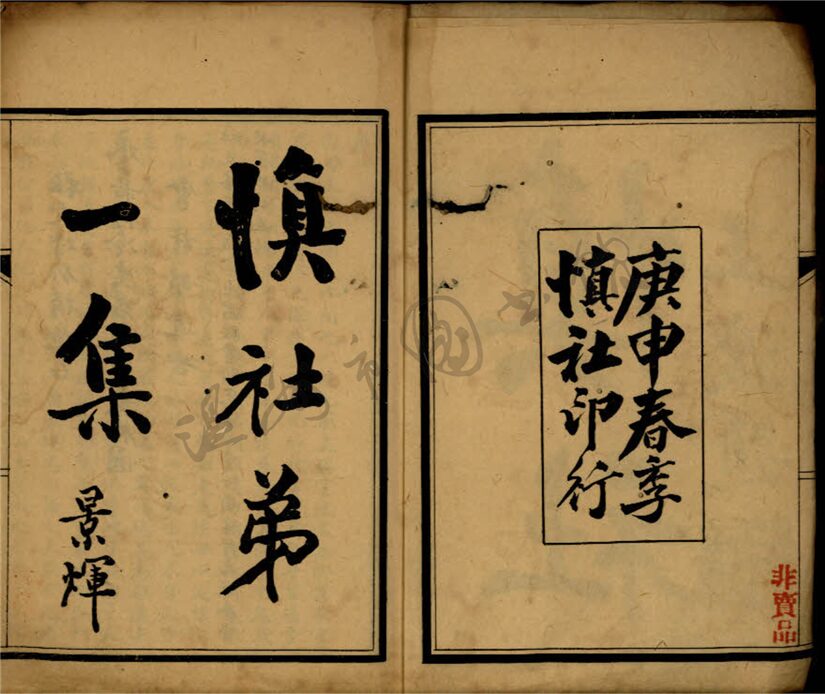 庚申春季
慎社印行
非賣品
慎社弟
一集
景煇